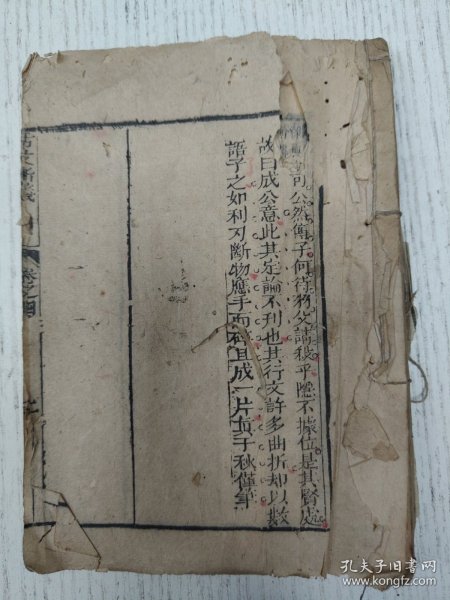 公然傳子何待物父請後乎隱不據位是其賢處
故曰成公意此其定論不刊也其行文許多曲折却以數
語子之如利刃斷物應手而破且成一片真千秋僅筆
古文析義
卷之四
孔夫子旧书网
www.kongfz.com